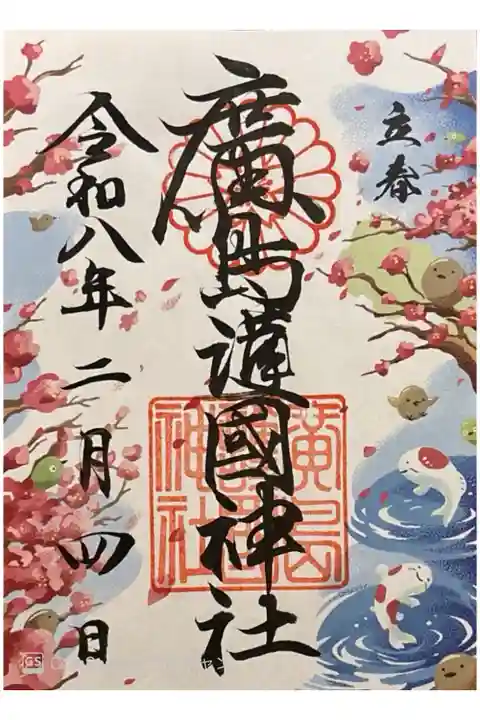 立春
廣島護國神社
令和八年二月四日
廣島
神社
GS